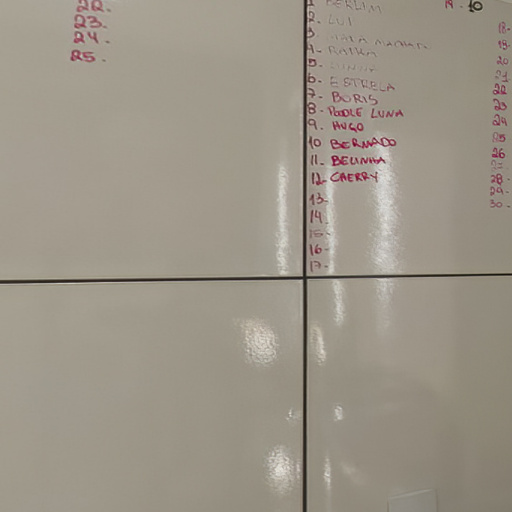 22.
23.
24.
25.
1 BERLIM
2. LUI
3
4- 
5.
6- ESTRELA
7. BORIS
8- POODLE LUNA
9. HUGO
10 BERNADO
11. BELINHA
12 CHERRY
13-
14.
15-
16-
17-
19.10
18-
19-
20
21
22
23
24
25
26
28-
29-
30-